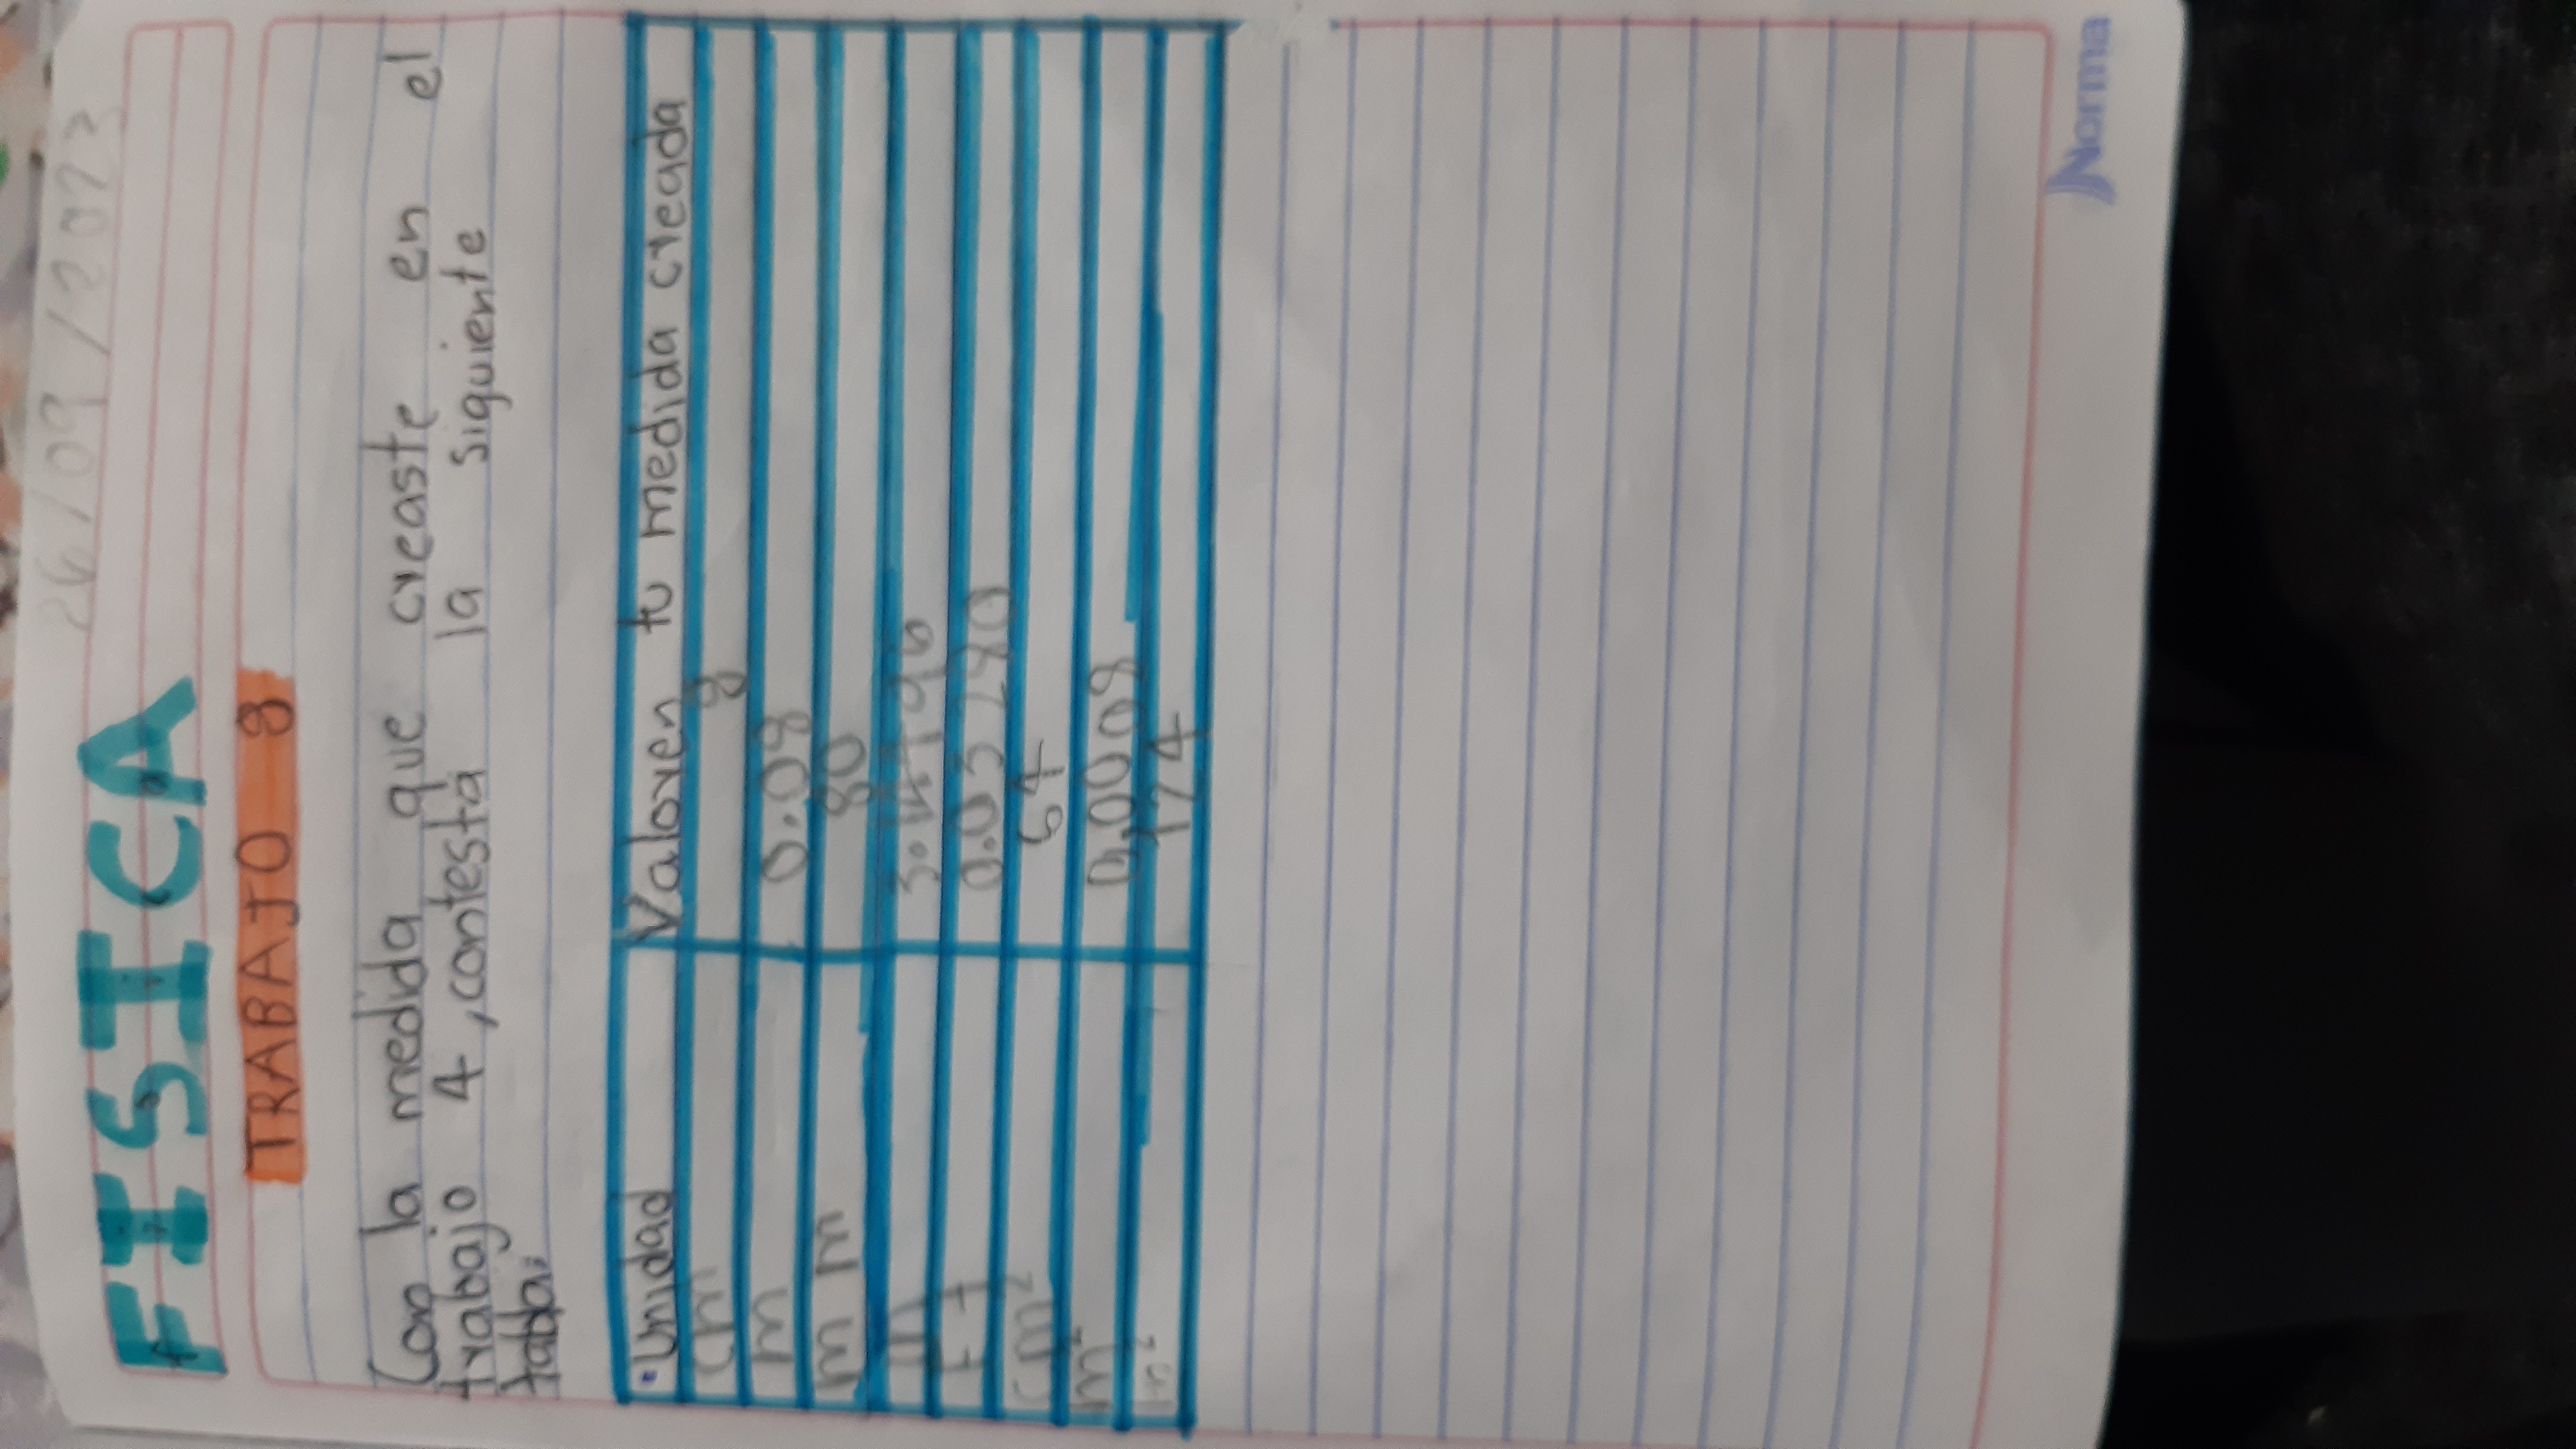 26/09/2023
FISICA
TRABAJO 8
Con la medida que creaste en el
trabajo 4, contesta la siguiente
tabla:
Unidad Valor en tu medida creada
cm 8
m 0.08
mm 80
3.1496
FT
cm² 64
m² 0.0008
in² 174
Norma